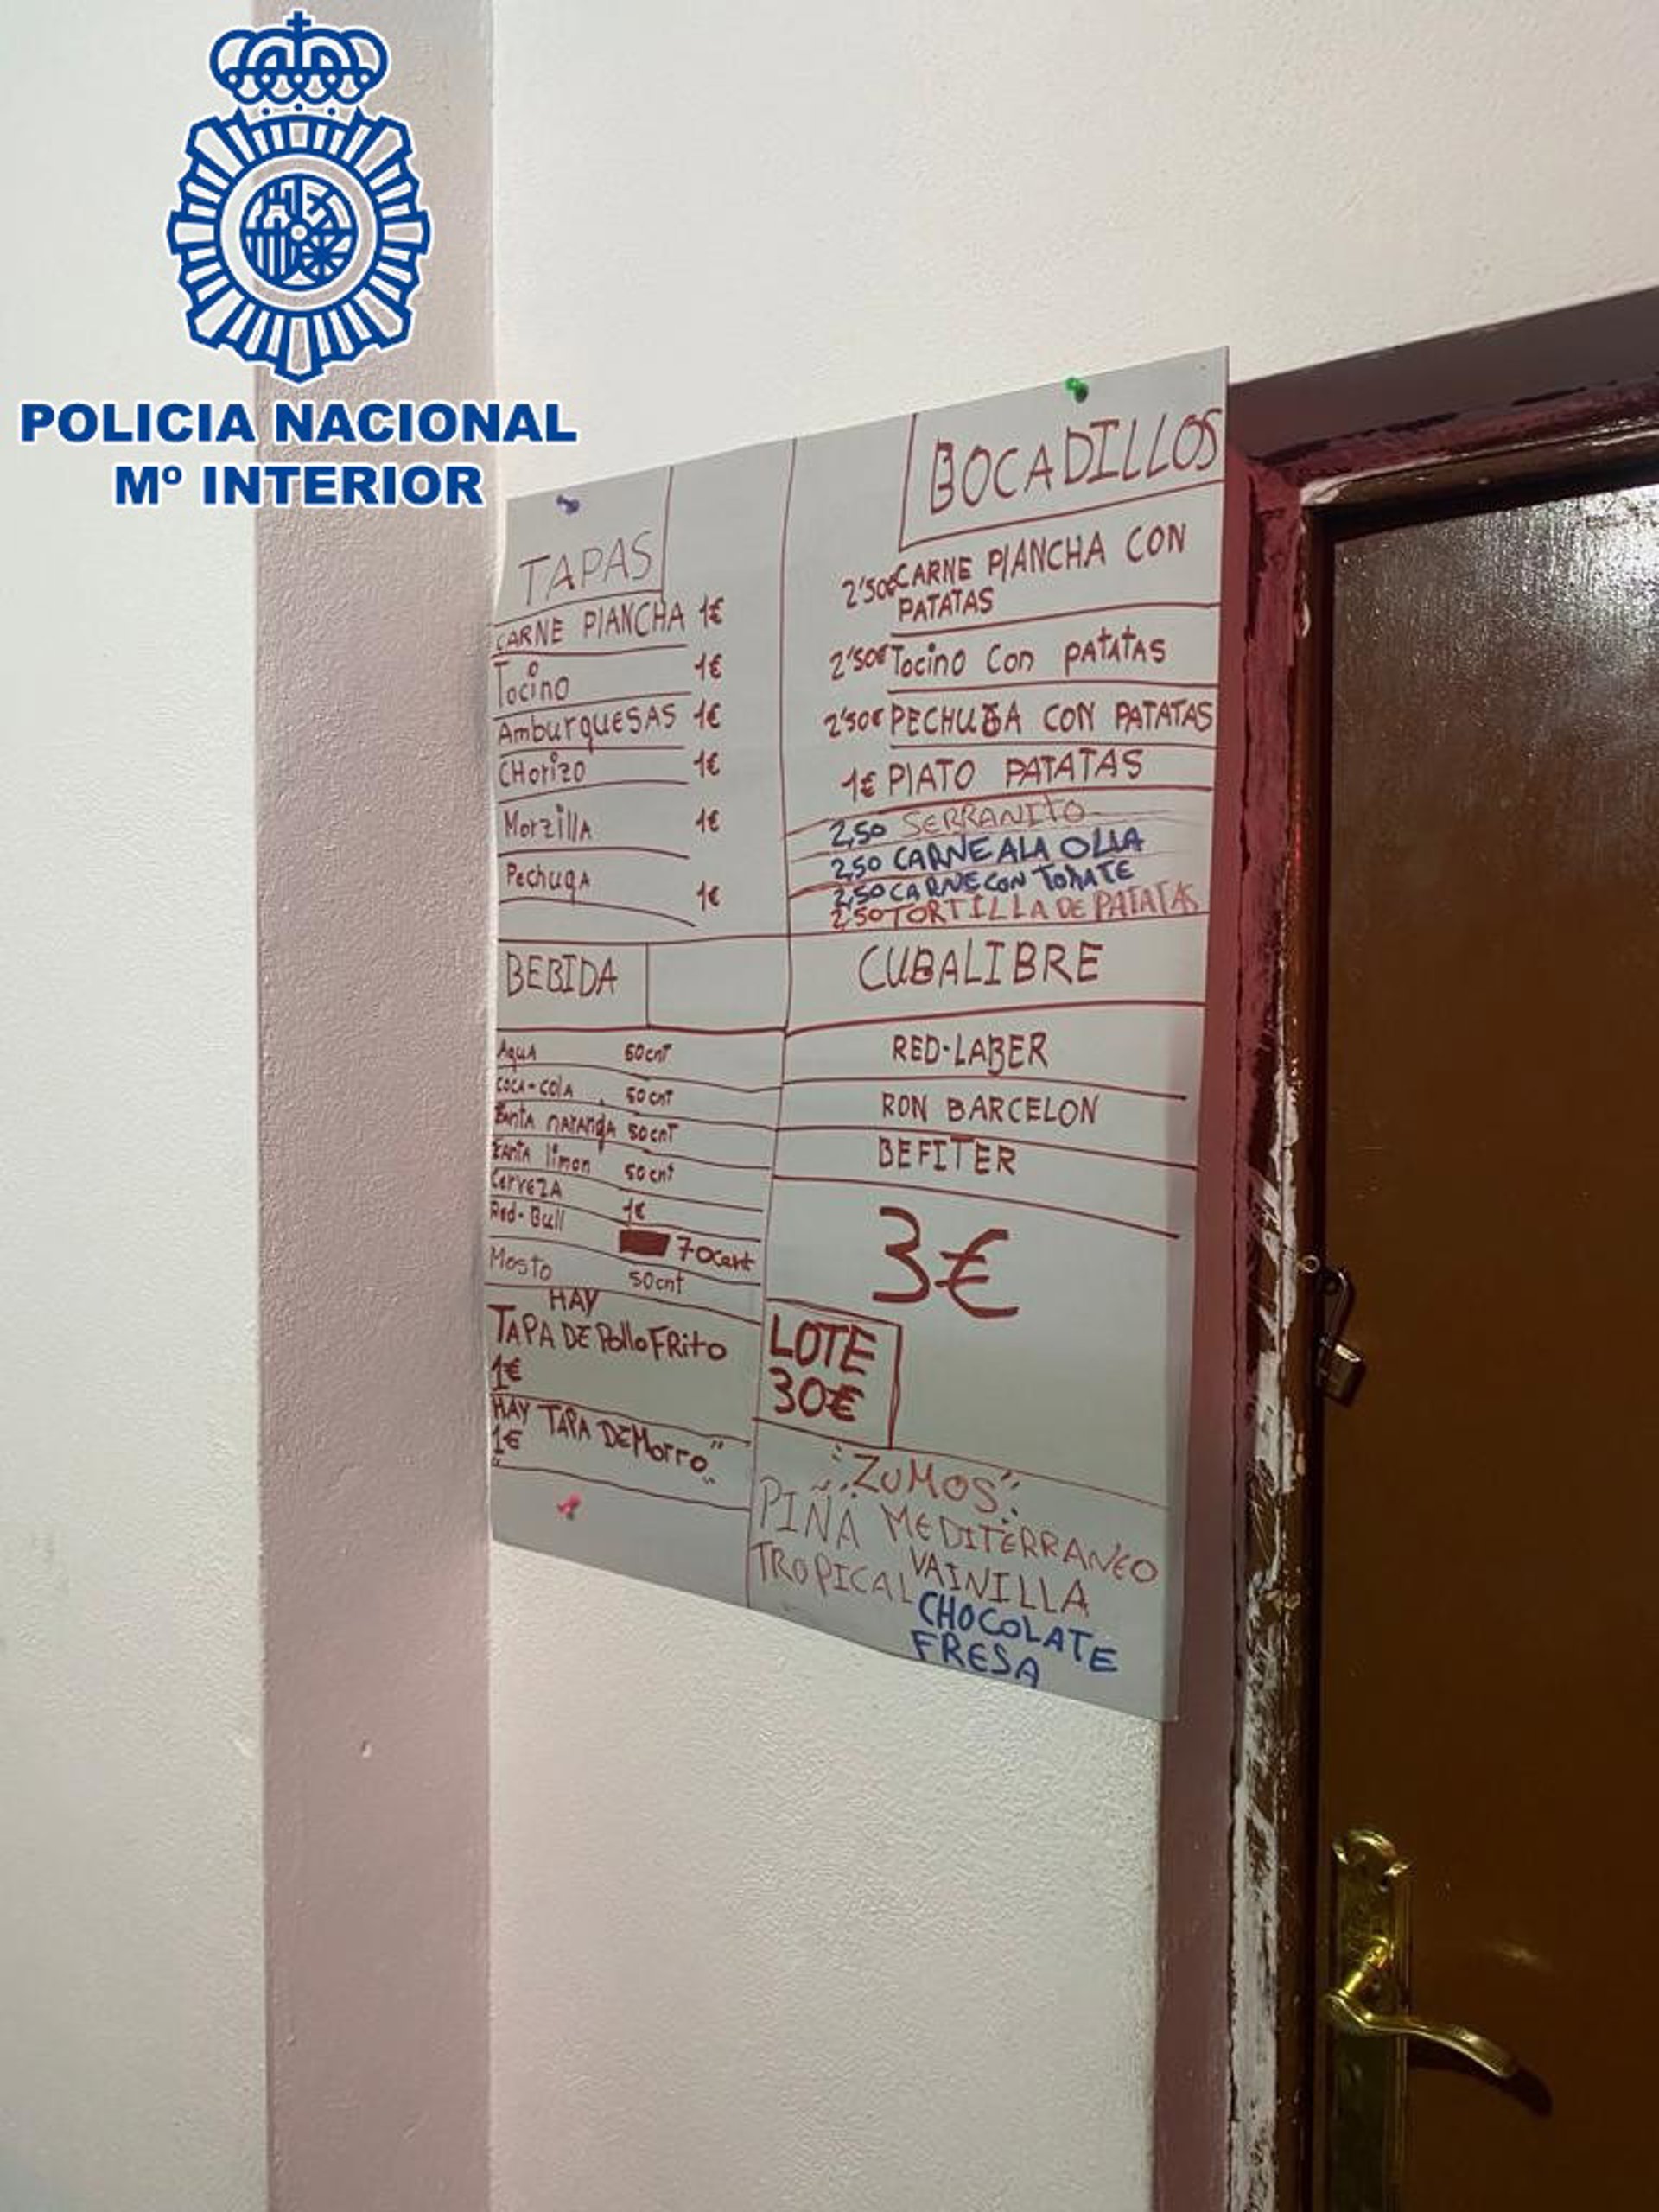 POLICIA NACIONAL
Mº INTERIOR
TAPAS
CARNE PIANCHA 1€
Tocino 1€
AmburguESAS 1€
CHorizo 1€
MorzillA 1€
PechugA 1€
BEBIDA
AguA 50cnt
COCA-COlA 50cnt
FantA NARANgA 50cnt
FANTA limon 50cnt
CerVeZA 1€
Red-Bull 70cent
Mosto 50cnt
HAY
TAPA DE Pollo FRito
1€
HAY TAPA DE Morro
1€
BOCADILLOS
2'50€ CARNE PIANCHA CON
PATATAS
2'50€ Tocino Con PAtAtAS
2'50€ PECHUGA CON PATATAS
1€ PIATO PATATAS
2,50 SERRANITO
2,50 CARNE ALA OLLA
2,50 CARNE CON TOMATE
2,50 TORTILLA DE PATATAS
CUBALIBRE
RED-LABER
RON BARCELON
BEFITER
3€
LOTE
30€
"ZUMOS"
PIÑA MEDITERRANEO
TROPICAL VAINILLA
CHOCOLATE
FRESA